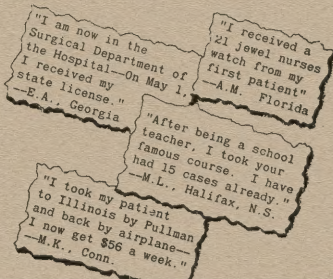 "I am now in the
Surgical Department of
the Hospital--On May 1,
I received my
state license."
--E.A., Georgia
"I received a
21 jewel nurses
watch from my
first patient"
--A.M. Florida
"After being a school
teacher, I took your
famous course. I have
had 15 cases already."
--M.L., Halifax, N.S.
"I took my patient
to Illinois by Pullman
and back by airplane--
I now get $56 a week."
--M.K., Conn.